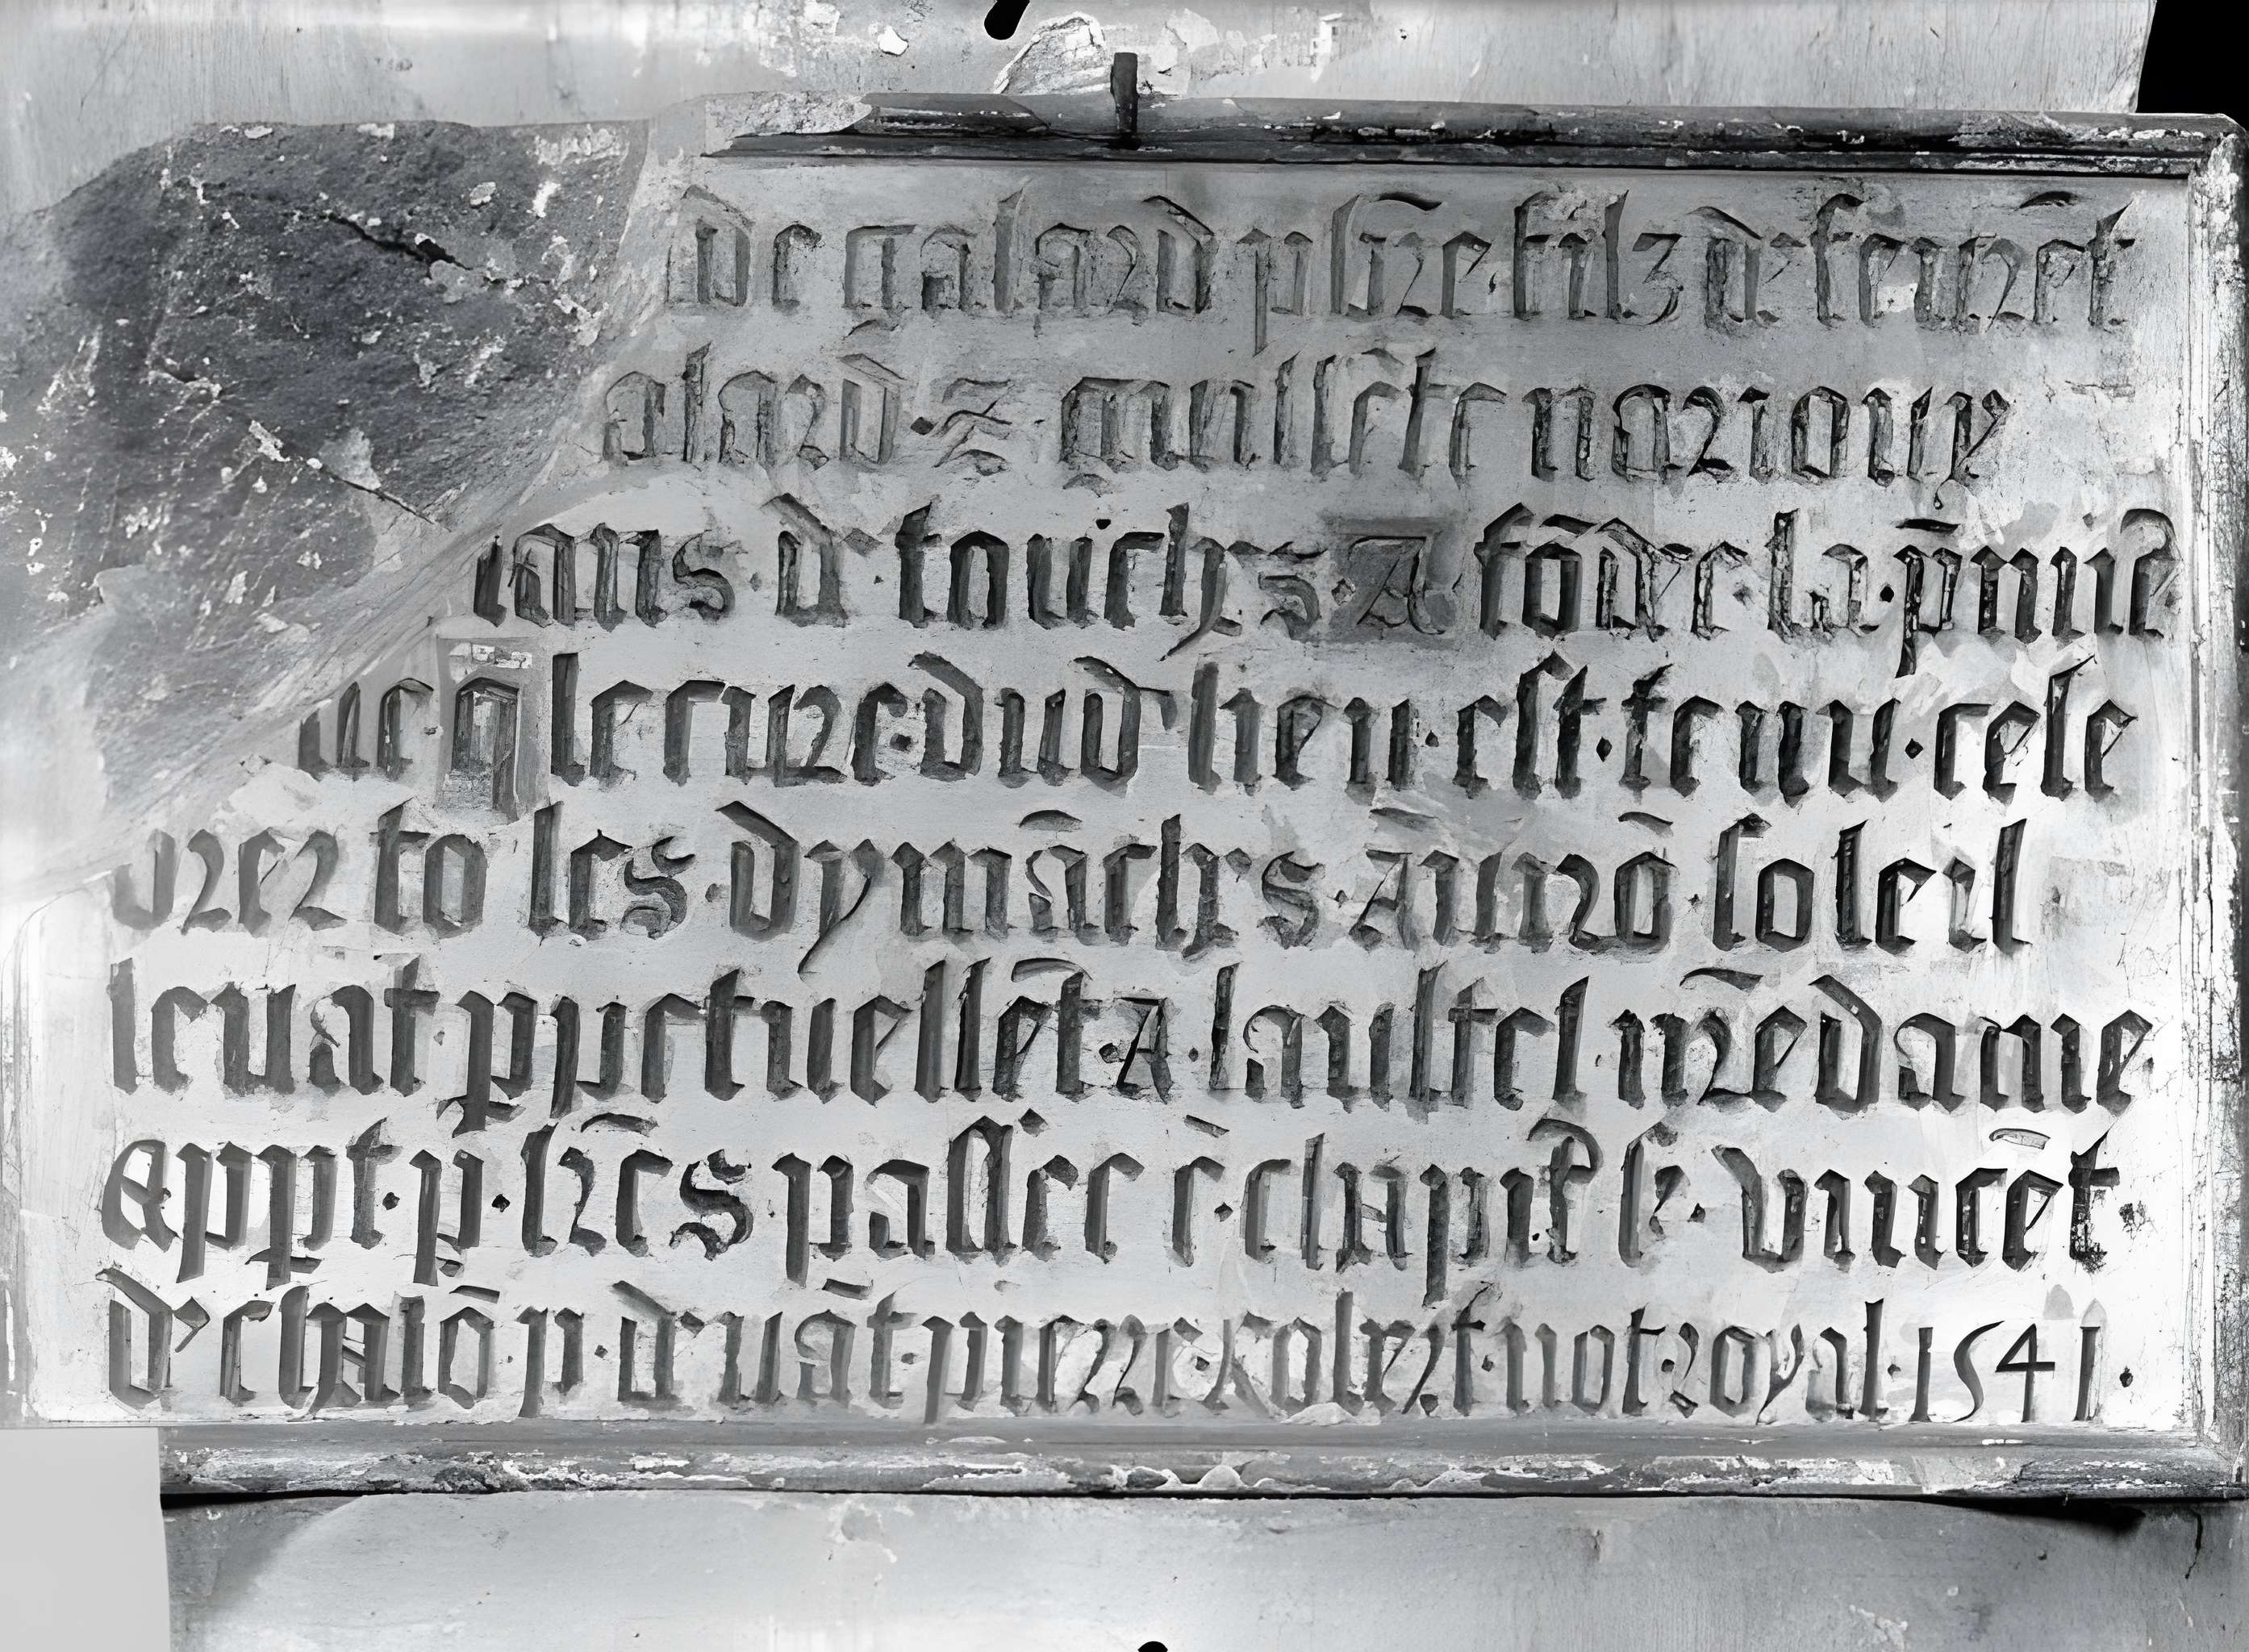 de galard pbr̄e filz de feu r̄et
alard · & guill̄ete narioux
ians · de · touch̄es · A fōde · la · p̄nnie
ue · q̄ le cure · dud lieu · est · tenu · cele
brer to les · dymāches · Āuirō · soleil
leuāt ppetuellēt · A · laultel nr̄e dame
Appt · p · lr̄es passees ē · chapit̄ · vincēt
de chalō p · deuāt · pierre · not · royal · 1541 ·